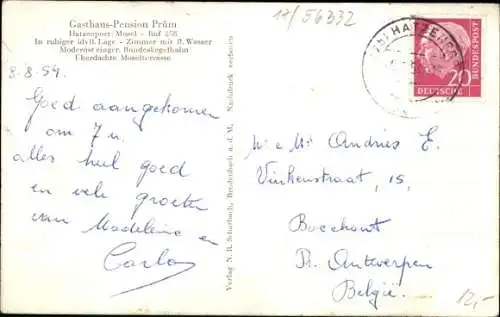 Gasthaus-Pension Prüm
Hatzenport/Mosel - Ruf 258
In ruhiger idyll. Lage - Zimmer mit fl. Wasser
Moderne einger. Bundeskegelbahn
Überdachte Moselterrasse
12/56332
HATZENPORT
DEUTSCHE
BUNDESPOST
20
8-8-54.
Goed aangekomen
om 7 u.
alles heel goed
en vele groeten
van Madeleine en
Carla
Nachdruck verboten
Verlag N. R. Schurbach, Bendenbach a. d. M.
Andries E.
Vinkenstraat, 15,
Boechout
Pr. Antwerpen
België.
12,-